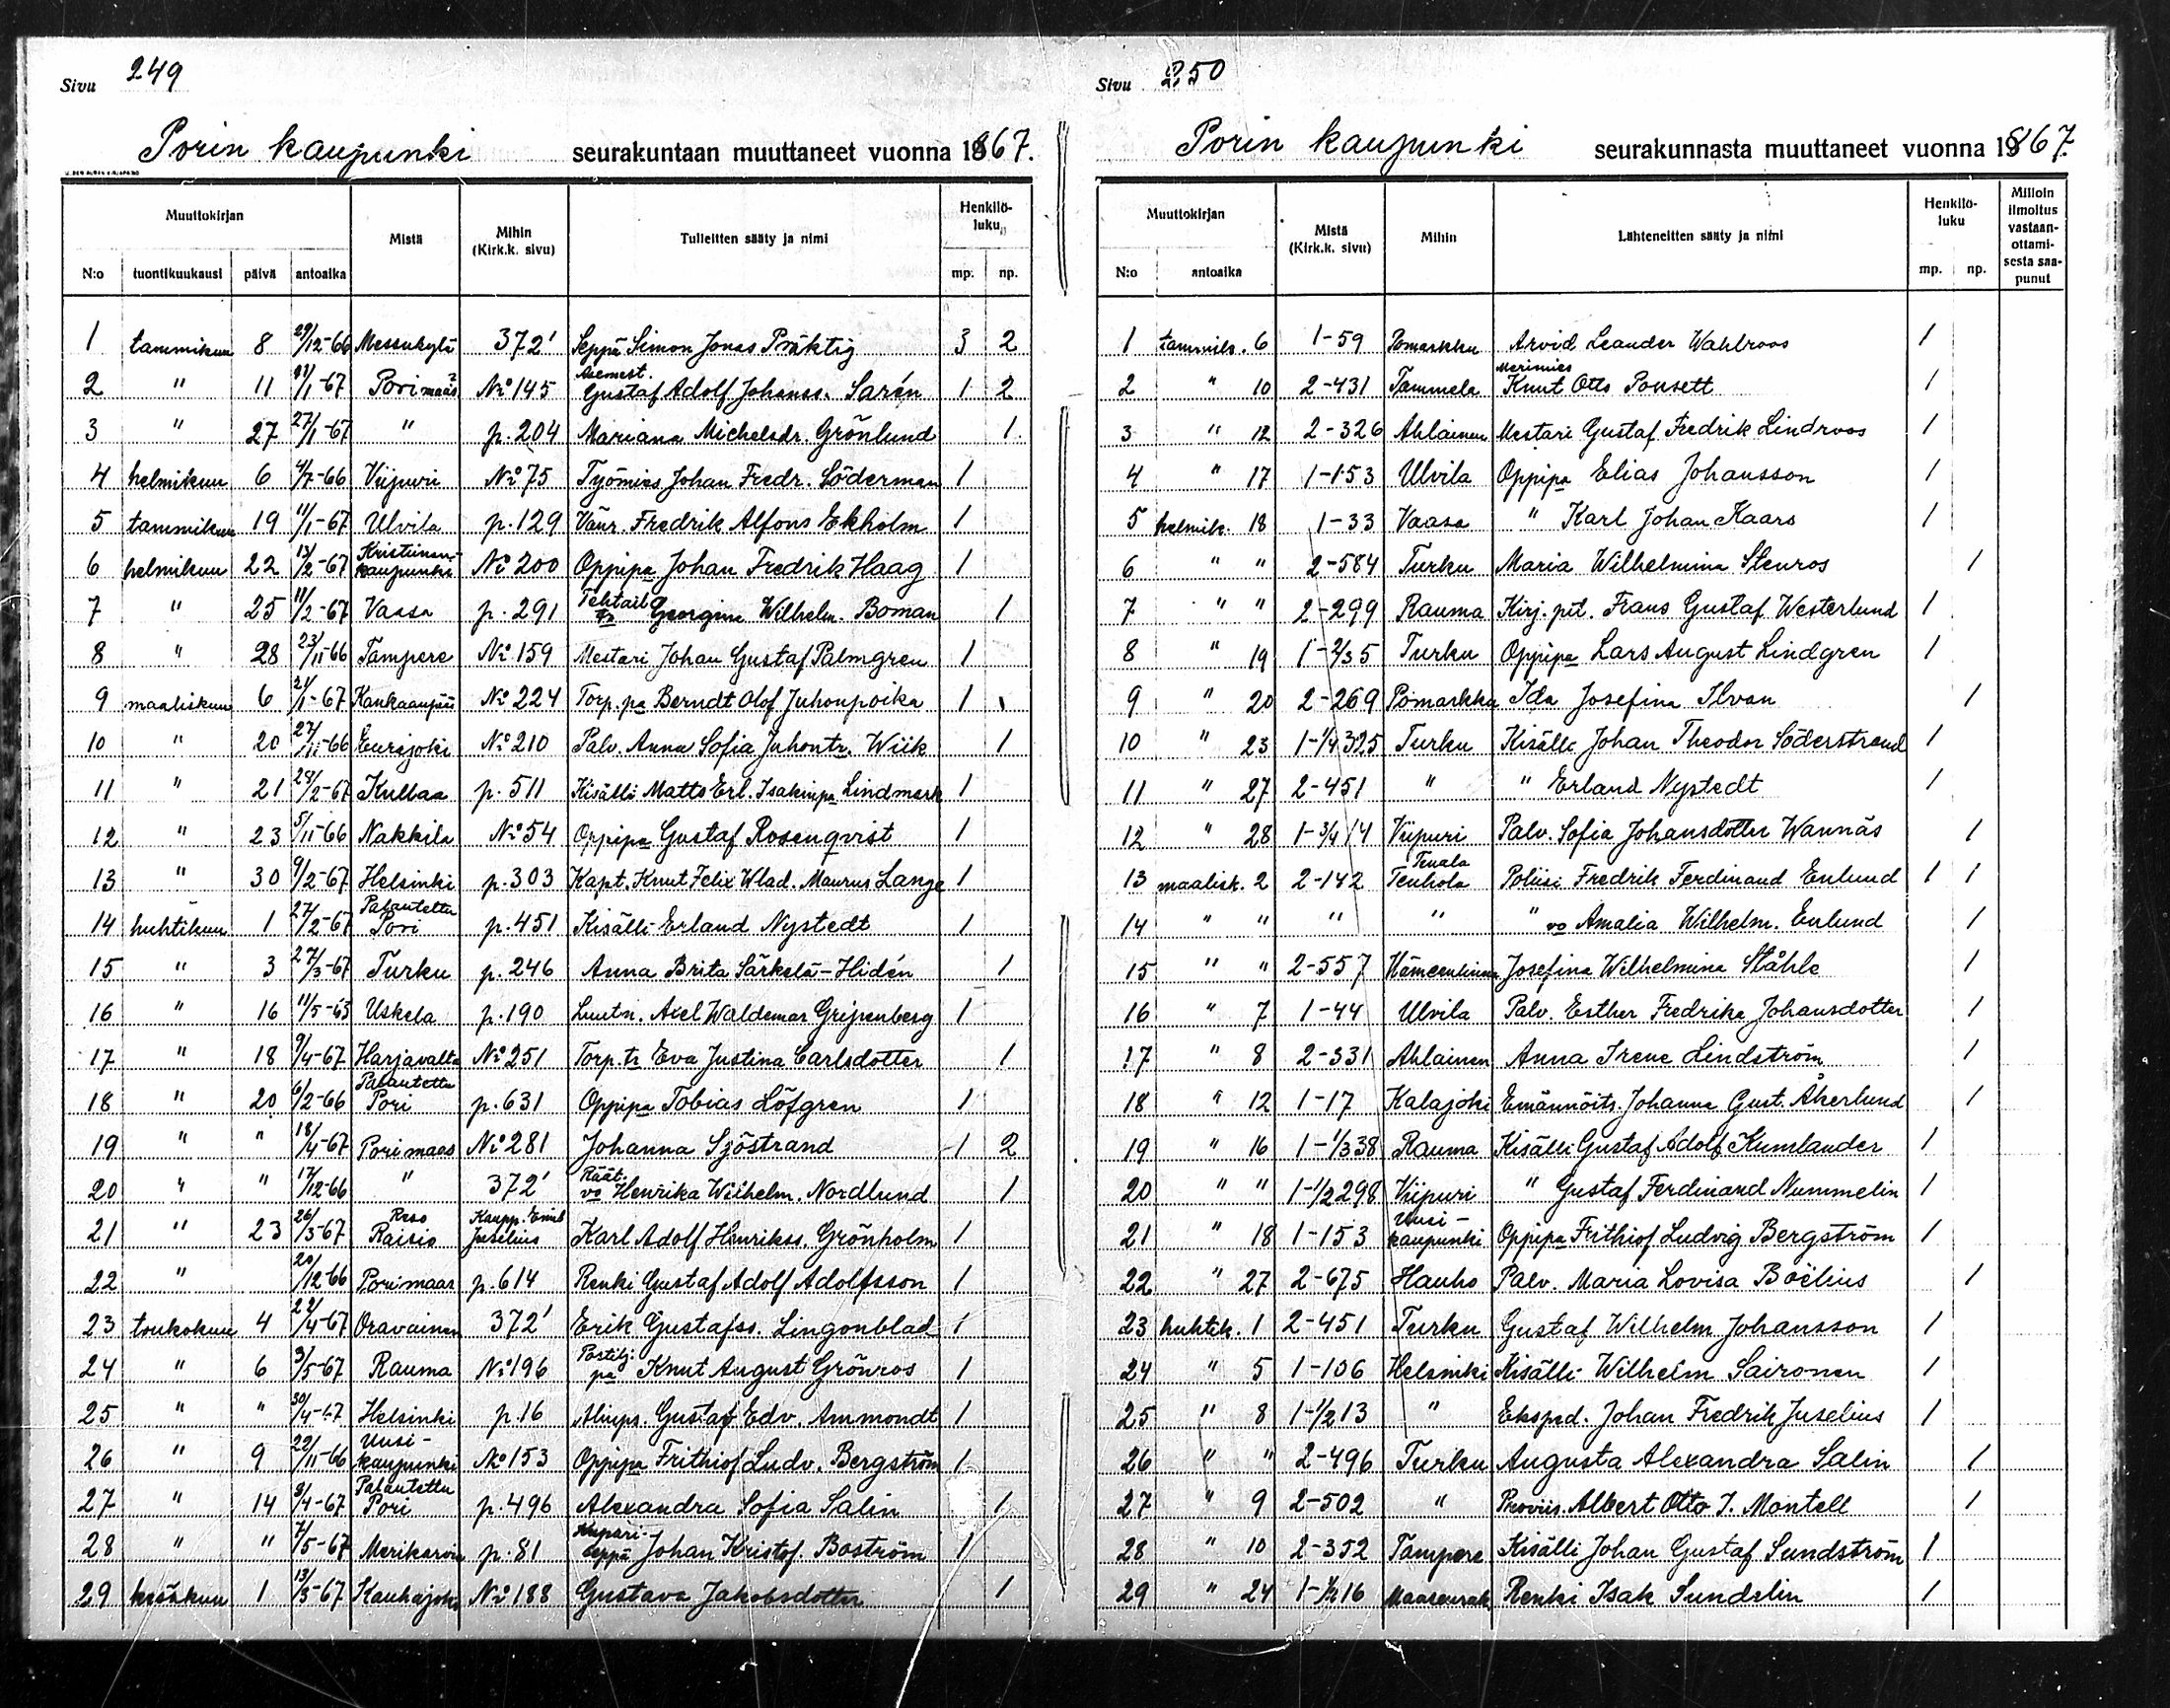 Sivu 249
Porin kaupunki seurakuntaan muuttaneet vuonna 1867.
Muuttokirjan Mistä Mihin (Kirk.k. sivu) Tulleitten sääty ja nimi Henkilö-luku
N:o tuontikuukausi päivä antoaika mp. np.
1 tammikuu 8 29/12-66 Messukylä 372' Seppä Simon Jonas Präktig 3 2
2 " 11 11/1-67 Pori maas? No 145 Asemest. Gustaf Adolf Johanss. Sarén 1 2
3 " 27 27/1-67 " p. 204 Mariana Michelsdr. Grönlund 1
4 helmikuu 6 4/7-66 Viipuri No 75 Työmies Johan Fredr. Söderman 1
5 tammikuu 19 11/1-67 Ulvila p. 129 Vänr. Fredrik Alfons Ekholm 1
6 helmikuu 22 13/2-67 Kristiinan-kaupunki No 200 Oppipa Johan Fredrik Haag 1
7 " 25 11/2-67 Vaasa p. 291 Tehtail tr Georgina Wilhelm. Boman 1
8 " 28 23/11-66 Tampere No 159 Mestari Johan Gustaf Palmgren 1
9 maaliskuu 6 21/1-67 Kankaanpää No 224 Torp. pa Berndt Olof Juhonpoika 1
10 " 20 27/11-66 Eurajoki No 210 Palv. Anna Sofia Juhontr. Wiik 1
11 " 21 28/2-67 Kullaa p. 511 Kisälli Matts Erl. Isakinpa Lindmark 1
12 " 23 5/11-66 Nakkila No 54 Oppipa Gustaf Rosenqvist 1
13 " 30 9/2-67 Helsinki p. 303 Kapt. Knut Felix Wlad. Maurus Lange 1
14 huhtikuu 1 27/2-67 Palautettu Pori p. 451 Kisälli Erland Nystedt 1
15 " 3 27/3-67 Turku p. 246 Anna Brita Särkelä-Hidén 1
16 " 16 11/5-63 Uskela p. 190 Luutn. Axel Waldemar Gripenberg 1
17 " 18 9/4-67 Harjavalta No 251 Torp. tr Eva Justina Carlsdotter 1
18 " 20 6/2-66 Palautettu Pori p. 631 Oppipa Tobias Löfgren 1
19 " " 18/4-67 Pori maas No 281 Johanna Sjöstrand 1 2
20 " " 17/12-66 " 372' Räät. vo Henrika Wilhelm. Nordlund 1
21 " 23 26/3-67 Reso Raisio Kaupp. Emil Juselius Karl Adolf Henrikss. Grönholm 1
22 " 20/12-66 Pori maas p. 614 Renki Gustaf Adolf Adolfsson 1
23 toukokuu 4 22/4-67 Oravainen 372' Erik Gustafss. Lingonblad 1
24 " 6 3/5-67 Rauma No 196 Postilj. pa Knut August Grönros 1
25 " " 30/4-67 Helsinki p. 16 Aliups. Gustaf Edv. Ammondt 1
26 " 9 22/11-66 Uusi-kaupunki No 153 Oppipa Frithiof Ludv. Bergström 1
27 " 14 3/4-67 Palautettu Pori p. 496 Alexandra Sofia Salin 1
28 " " 7/5-67 Merikarvia p. 81 Kupari-seppä Johan Kristof. Boström 1
29 kesäkuu 1 13/3-67 Kauhajoki No 188 Gustava Jakobsdotter 1
Sivu 250
Porin kaupunki seurakunnasta muuttaneet vuonna 1867.
Muuttokirjan Mistä (Kirk.k. sivu) Mihin Lähteneitten sääty ja nimi Henkilö-luku Milloin ilmoitus vastaan-ottami-sesta saa-punut
N:o antoaika mp. np.
1 tammik. 6 1-59 Pomarkku Arvid Leander Wahlroos 1
2 " 10 2-431 Tammela Merimies Knut Otto Ponsett 1
3 " 12 2-326 Ahlainen Mestari Gustaf Fredrik Lindroos 1
4 " 17 1-153 Ulvila Oppipa Elias Johansson 1
5 helmik. 18 1-33 Vaasa " Karl Johan Kaars 1
6 " " 2-584 Turku Maria Wilhelmina Stenros 1
7 " " 2-299 Rauma Kirj. pit. Frans Gustaf Westerlund 1
8 " 19 1-2/35 Turku Oppipa Lars August Lindgren 1
9 " 20 2-269 Pomarkku Ida Josefina Ilvan 1
10 " 23 1-1/4 325 Turku Kisälli Johan Theodor Söderstrand 1
11 " 27 2-451 " " Erland Nystedt 1
12 " 28 1-3/4 14 Viipuri Palv. Sofia Johansdotter Wannäs 1
13 maalisk. 2 2-142 Tenala Tenhola Poliisi Fredrik Ferdinand Enlund 1 1
14 " " " " " vo Amalia Wilhelm. Enlund 1
15 " " 2-557 Hämeenlinna Josefina Wilhelmina Ståhle 1
16 " 7 1-44 Ulvila Palv. Esther Fredrika Johansdotter 1
17 " 8 2-331 Ahlainen Anna Irene Lindström 1
18 " 12 1-17 Kalajoki Emännöits. Johanna Gust. Åkerlund 1
19 " 16 1-1/3 38 Rauma Kisälli Gustaf Adolf Kumlander 1
20 " " 1-1/2 298 Viipuri " Gustaf Ferdinand Nummelin 1
21 " 18 1-153 Uusi-kaupunki Oppipa Frithiof Ludvig Bergström 1
22 " 27 2-675 Hauho Palv. Maria Lovisa Boëlius 1
23 huhtik. 1 2-451 Turku Gustaf Wilhelm Johansson 1
24 " 5 1-106 Helsinki Kisälli Wilhelm Saironen 1
25 " 8 1-1/2 13 " Eksped. Johan Fredrik Juselius 1
26 " " 2-496 Turku Augusta Alexandra Salin 1
27 " 9 2-502 " Proviis. Albert Otto I. Montell 1
28 " 10 2-352 Tampere Kisälli Johan Gustaf Sundström 1
29 " 24 1-1/2 16 Maaseurak. Renki Isak Sundelin 1